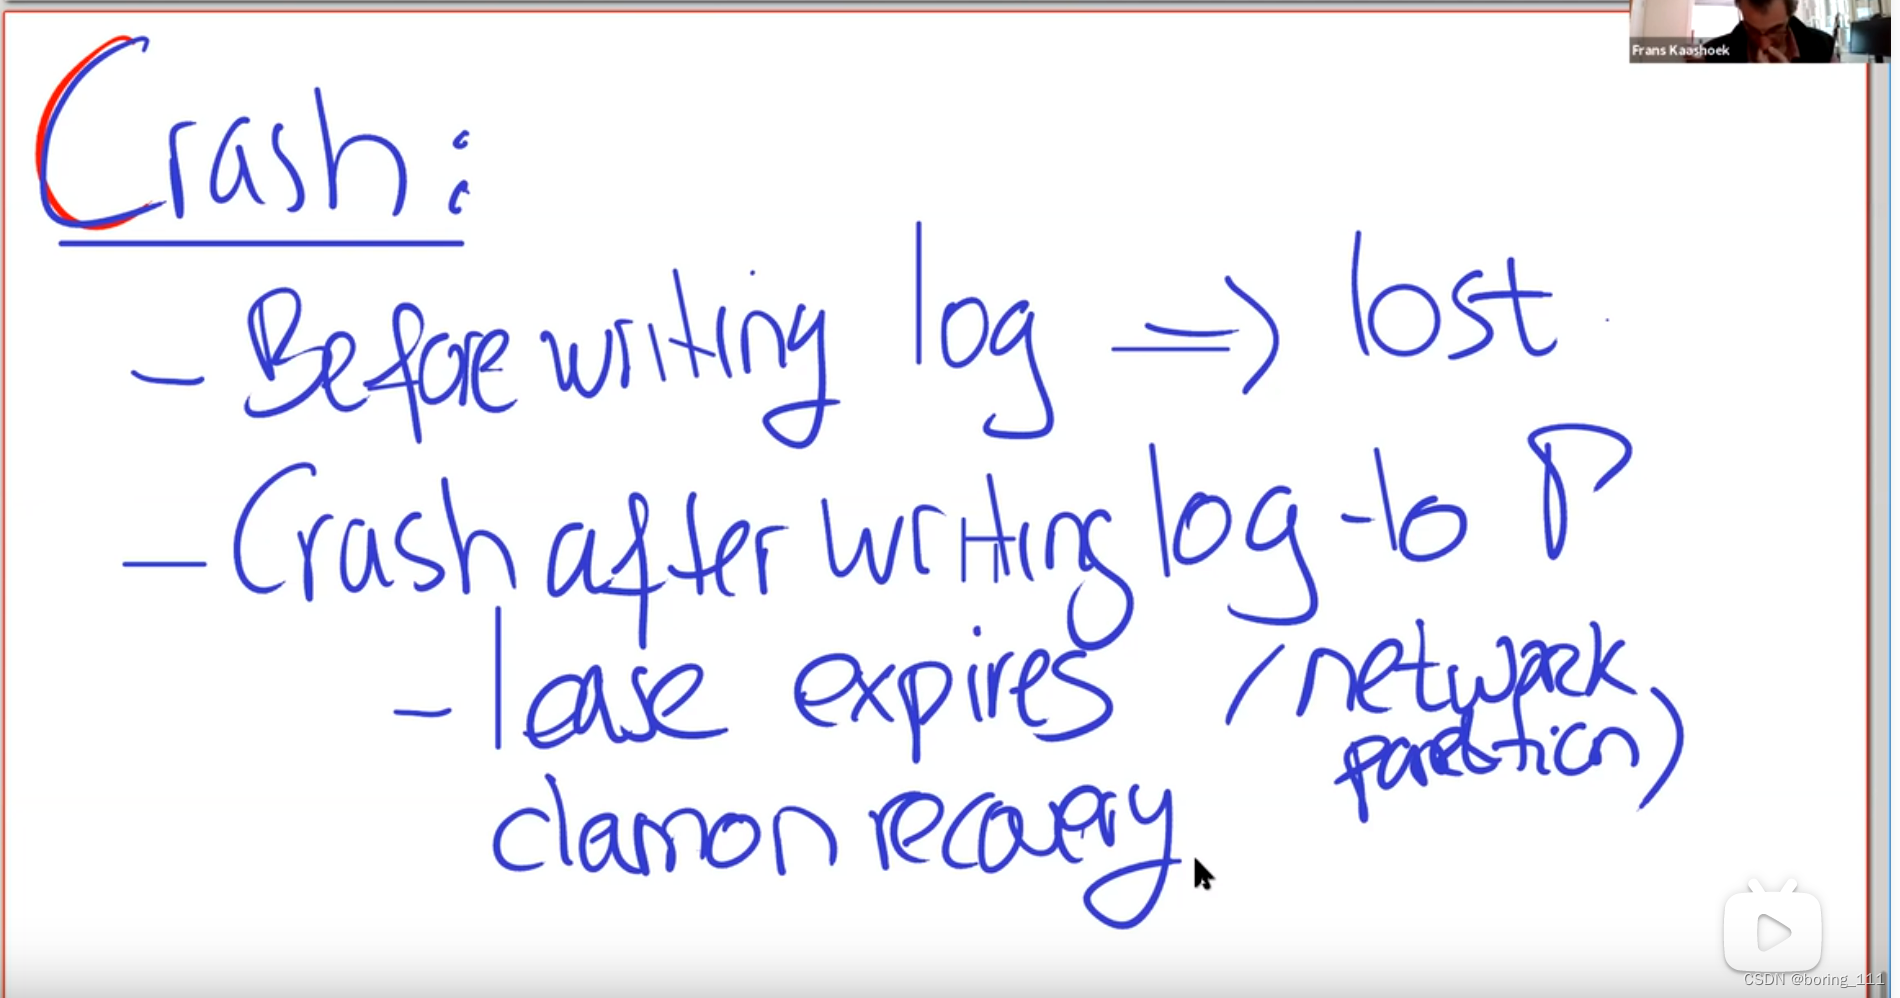 Frans Kaashoek
Crash:
- Before writing log => lost.
- Crash after writing log to P
- lease expires (network
partition)
clamon recovery
CSDN @boring_111